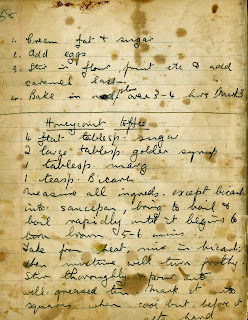 1. Cream fat & sugar
2. Add eggs
3. Stir in flour fruit etc & add
caramel last
4. Bake in over 3-4 hrs Mark 3
Honeycomb toffee
4 flat tablesp. sugar
2 large tablesp golden syrup
1 tablesp marg
1 teasp. B. carb
Measure all ingreds. except bicarb
into saucepan, bring to boil &
boil rapidly until it begins to
turn brown 5-6 mins.
Take from heat mix in bicarb;
the mixture will turn frothy.
Stir thoroughly & pour into
well-greased tin. Mark it into
squares when cool but before it
hard